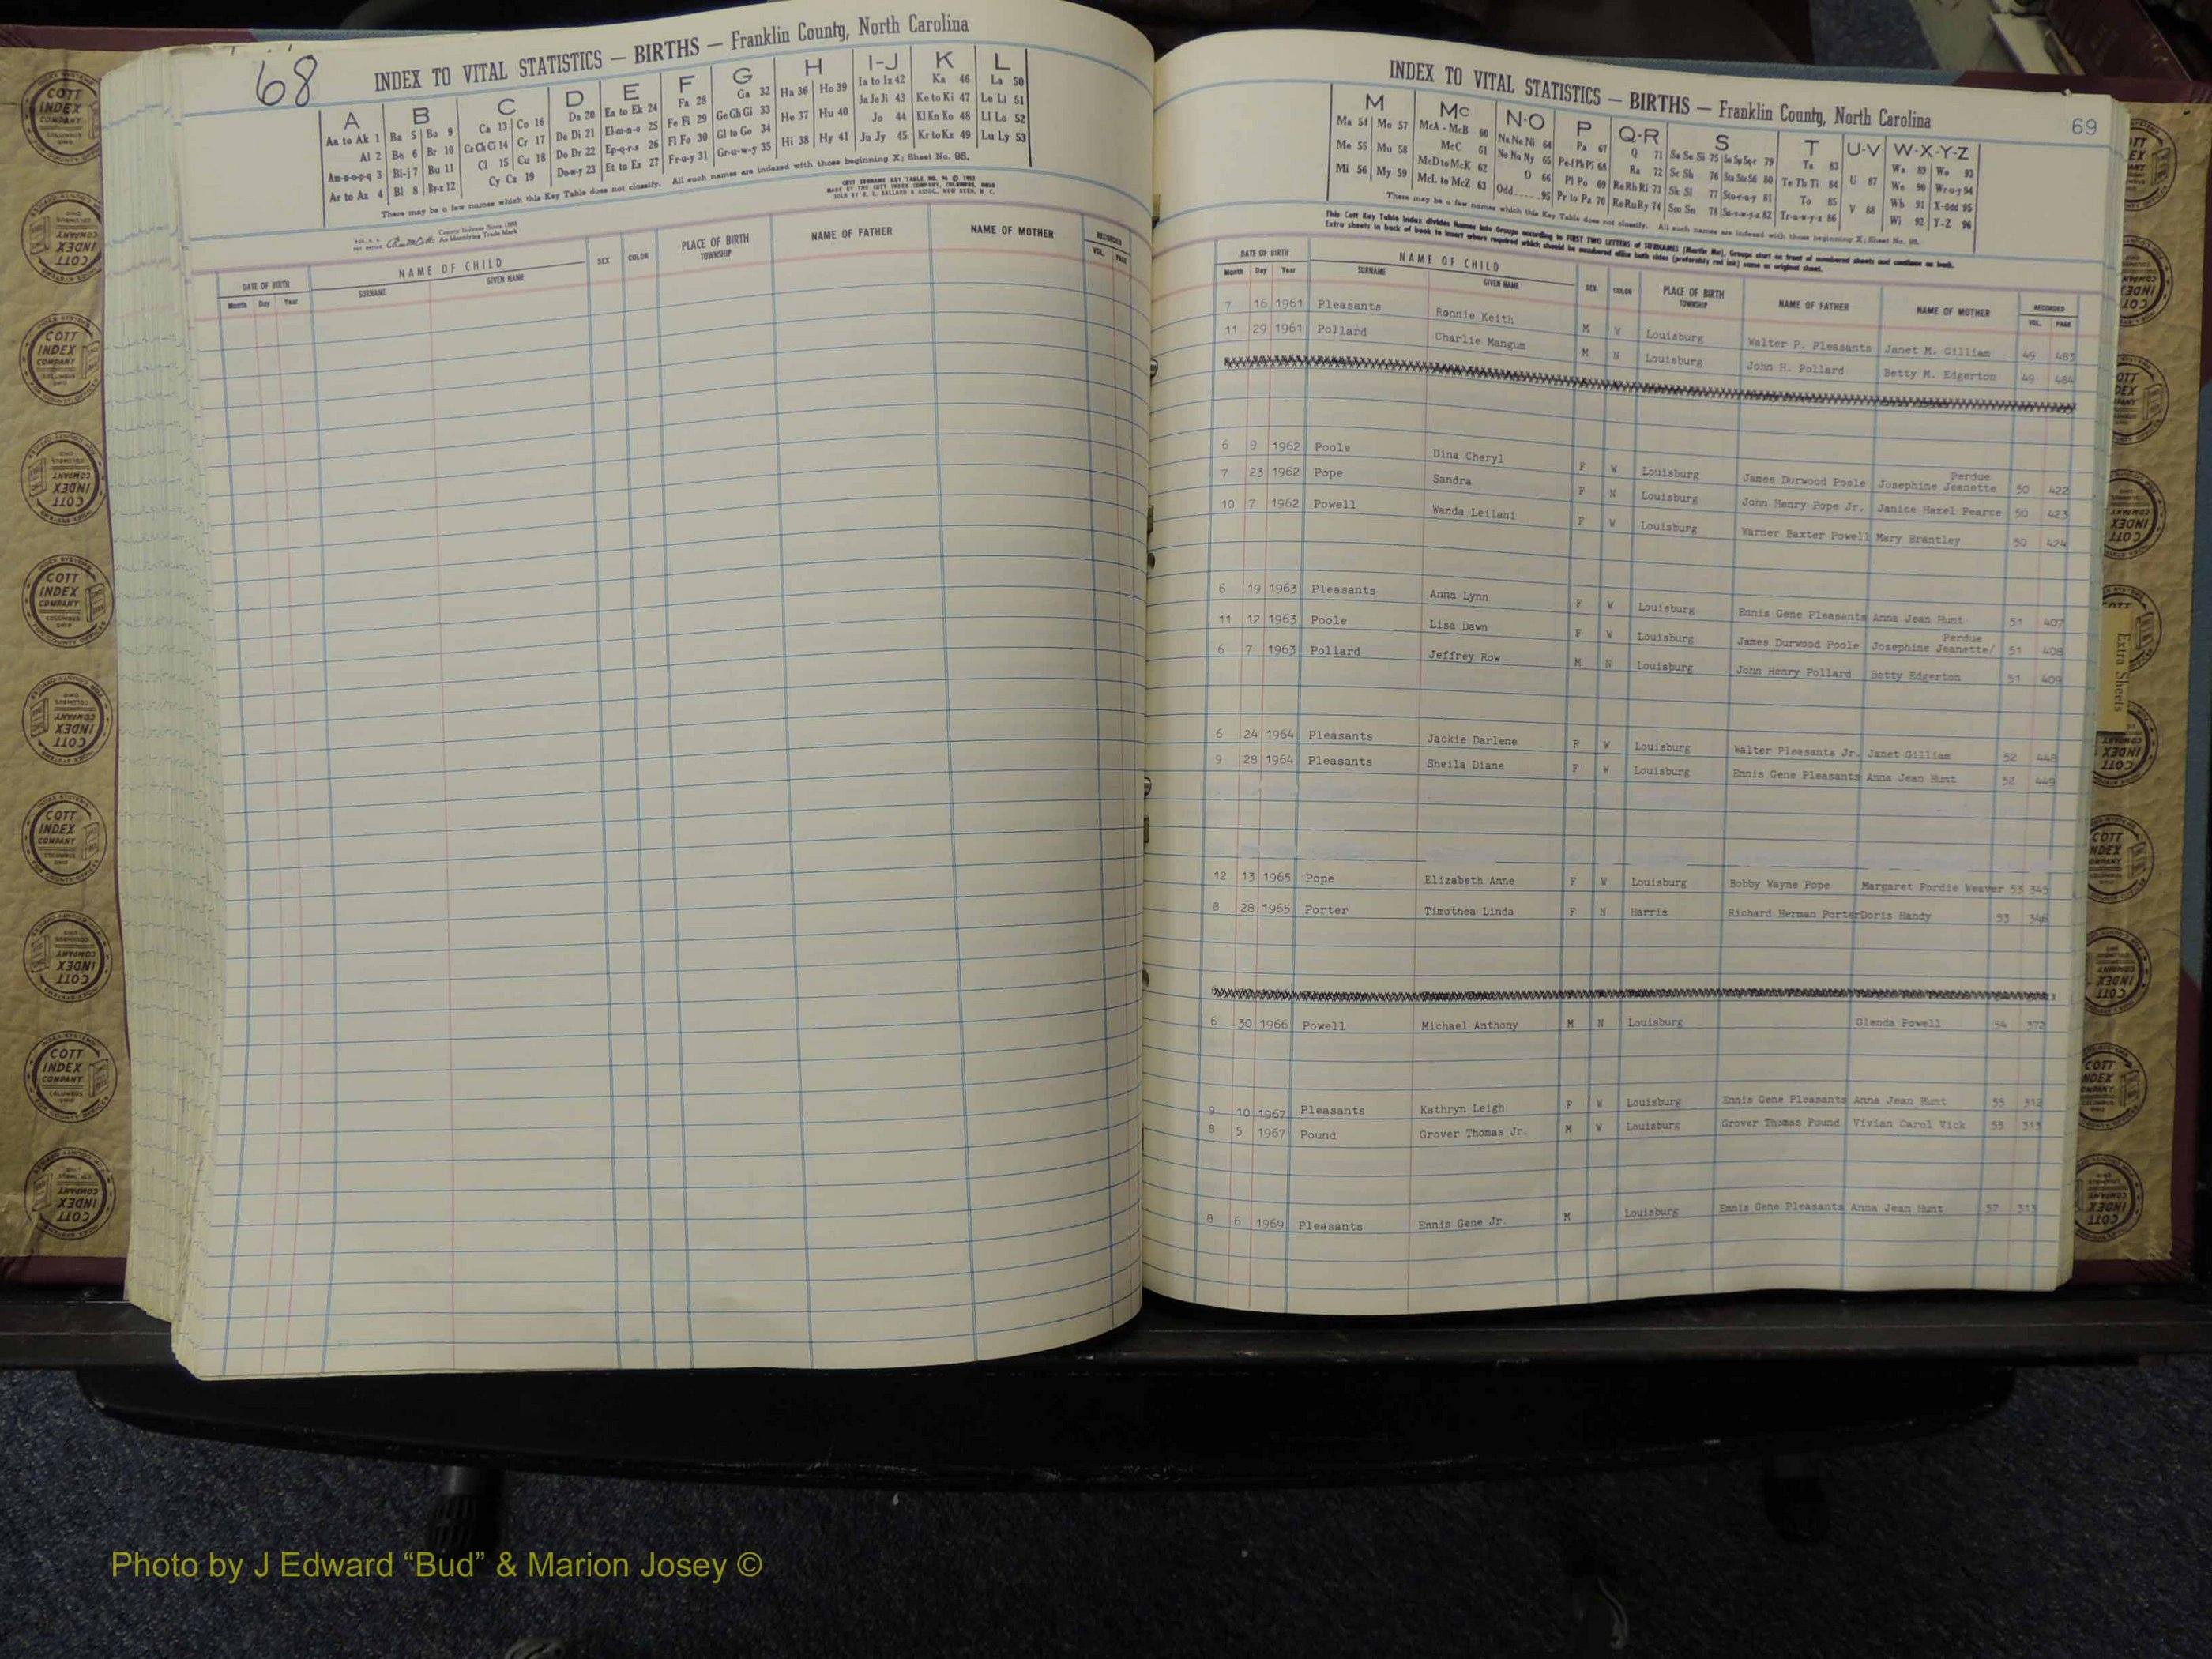 68
INDEX TO VITAL STATISTICS — BIRTHS — Franklin County, North Carolina
A B C D E F G H I-J K L
Aa to Ak 1 Ba 5 Bo 9 Ca 13 Co 16 Da 20 Ea to Ek 24 Fa 28 Ga 32 Ha 36 Ho 39 Ia to Iz 42 Ka 46 La 50
Al 2 Be 6 Br 10 Ce Ch Ci 14 Cr 17 De Di 21 El-m-n-o 25 Fe Fi 29 Ge Gh Gi 33 He 37 Hu 40 Ja Je Ji 43 Ke to Ki 47 Le Li 51
Am-n-o-p-q 3 Bi-j 7 Bu 11 Cl 15 Cu 18 Do Dr 22 Ep-q-r-s 26 Fl Fo 30 Gl to Go 34 Hi 38 Hy 41 Jo 44 Kl Kn Ko 48 Ll Lo 52
Ar to Az 4 Bl 8 By-z 12 Cy Cz 19 Du-w-y 23 Et to Ez 27 Fr-u-y 31 Gr-u-w-y 35 Ju Jy 45 Kr to Kz 49 Lu Ly 53
There may be a few names which this Key Table does not classify. All such names are indexed with those beginning X; Sheet No. 95.
County Indexes Since 1888
An Identifying Trade Mark
COTT SURNAME KEY TABLE
MADE BY THE COTT INDEX COMPANY, COLUMBUS, OHIO
SOLD BY
DATE OF BIRTH NAME OF CHILD SEX COLOR PLACE OF BIRTH NAME OF FATHER NAME OF MOTHER RECORDED
Month Day Year SURNAME GIVEN NAME TOWNSHIP VOL. PAGE
INDEX TO VITAL STATISTICS — BIRTHS — Franklin County, North Carolina
69
M Mc N-O P Q-R S T U-V W-X-Y-Z
Ma 54 Mo 57 McA - McB 60 Na Ne Ni 64 Pa 67 Q 71 Sa Se Si 75 So Sp Sq-r 79 Ta 83 U 87 Wa 89 Wo 93
Me 55 Mu 58 McC 61 No Nu Ny 65 Pe-f Ph Pi 68 Ra 72 Sc Sh 76 Sta Ste Sti 80 Te Th Ti 84 V 88 We 90 Wr-u-y 94
Mi 56 My 59 McD to McK 62 O 66 Pl Po 69 Re Rh Ri 73 Sk Sl 77 Sto-r-u-y 81 To 85 Wh 91 X-Odd 95
McL to McZ 63 Odd 95 Pr to Pz 70 Ro Ru Ry 74 Sm Sn 78 Su-v-w-y-z 82 Tr-u-w-y-z 86 Wi 92 Y-Z 96
There may be a few names which this Key Table does not classify. All such names are indexed with those beginning X; Sheet No. 95.
This Cott Key Table Index divides Names into Groups according to FIRST TWO LETTERS of SURNAMES (Martin Ma), Groups start on front of numbered sheets and continue on back.
Extra sheets in back of book to insert where required which should be numbered alike both sides (preferably red ink) same as original sheet.
DATE OF BIRTH NAME OF CHILD SEX COLOR PLACE OF BIRTH NAME OF FATHER NAME OF MOTHER RECORDED
Month Day Year SURNAME GIVEN NAME TOWNSHIP VOL. PAGE
7 16 1961 Pleasants Ronnie Keith M W Louisburg Walter P. Pleasants Janet M. Gilliam 49 483
11 29 1961 Pollard Charlie Mangum M N Louisburg John H. Pollard Betty M. Edgerton 49 484
6 9 1962 Poole Dina Cheryl F W Louisburg James Durwood Poole Josephine Jeanette Perdue 50 422
7 23 1962 Pope Sandra F N Louisburg John Henry Pope Jr. Janice Hazel Pearce 50 423
10 7 1962 Powell Wanda Leilani F W Louisburg Warner Baxter Powell Mary Brantley 50 424
6 19 1963 Pleasants Anna Lynn F W Louisburg Ennis Gene Pleasants Anna Jean Hunt 51 407
11 12 1963 Poole Lisa Dawn F W Louisburg James Durwood Poole Josephine Jeanette/ Perdue 51 408
6 7 1963 Pollard Jeffrey Row M N Louisburg John Henry Pollard Betty Edgerton 51 409
6 24 1964 Pleasants Jackie Darlene F W Louisburg Walter Pleasants Jr. Janet Gilliam 52 448
9 28 1964 Pleasants Sheila Diane F W Louisburg Ennis Gene Pleasants Anna Jean Hunt 52 449
12 13 1965 Pope Elizabeth Anne F W Louisburg Bobby Wayne Pope Margaret Fordie Weaver 53 345
8 28 1965 Porter Timothea Linda F N Harris Richard Herman Porter Doris Handy 53 346
6 30 1966 Powell Michael Anthony M N Louisburg Glenda Powell 54 372
9 10 1967 Pleasants Kathryn Leigh F W Louisburg Ennis Gene Pleasants Anna Jean Hunt 55 312
8 5 1967 Pound Grover Thomas Jr. M W Louisburg Grover Thomas Pound Vivian Carol Vick 55 313
8 6 1969 Pleasants Ennis Gene Jr. M Louisburg Ennis Gene Pleasants Anna Jean Hunt 57 313
Extra Sheets
COTT INDEX COMPANY COLUMBUS OHIO
Photo by J Edward “Bud” & Marion Josey ©